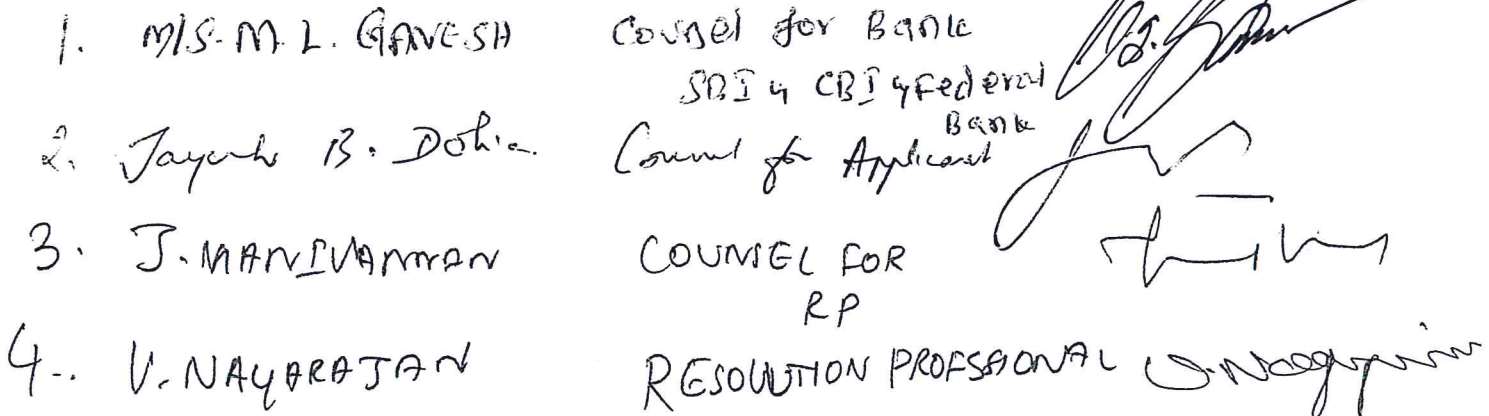 1. M/S. M. L. GANESH Counsel for Bank
SBI & CBI & Federal
Bank
2. Jayesh B. Dolia Counsel for Applicant
3. J. MANIVANNAN COUNSEL FOR
RP
4. V. NAGARAJAN RESOLUTION PROFSSIONAL